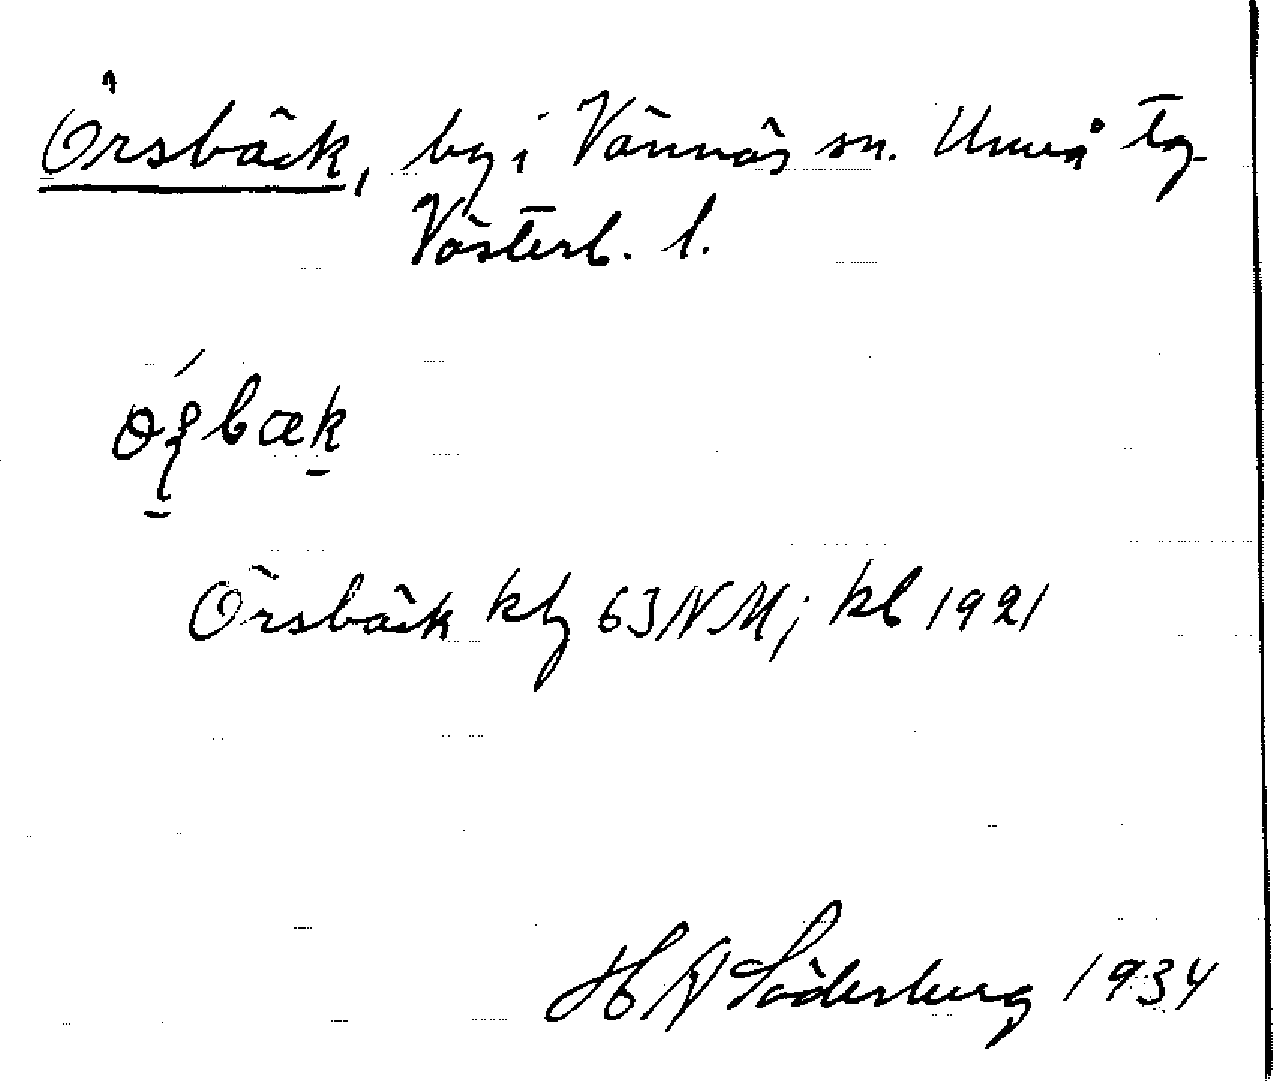 Örsbäck, by i Vännäs sn. Umeå tg.
Västerb. l.
Örsbäck kbl 63 NM; kb 1921
H N Söderberg 1934